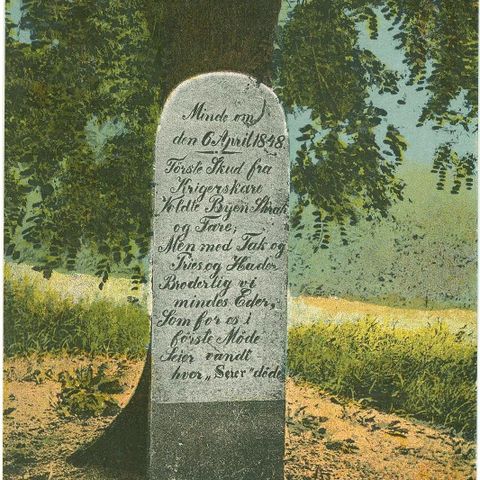 Minde om
den 6 April 1848.
Første Skud fra
Krigerskare
Voldte Byen Skræk
og Fare;
Men med Tak og
Priis og Hæder
Broderlig vi
mindes Eder,
Som for os i
første Møde
Seier vandt
hvor „Seier" døde